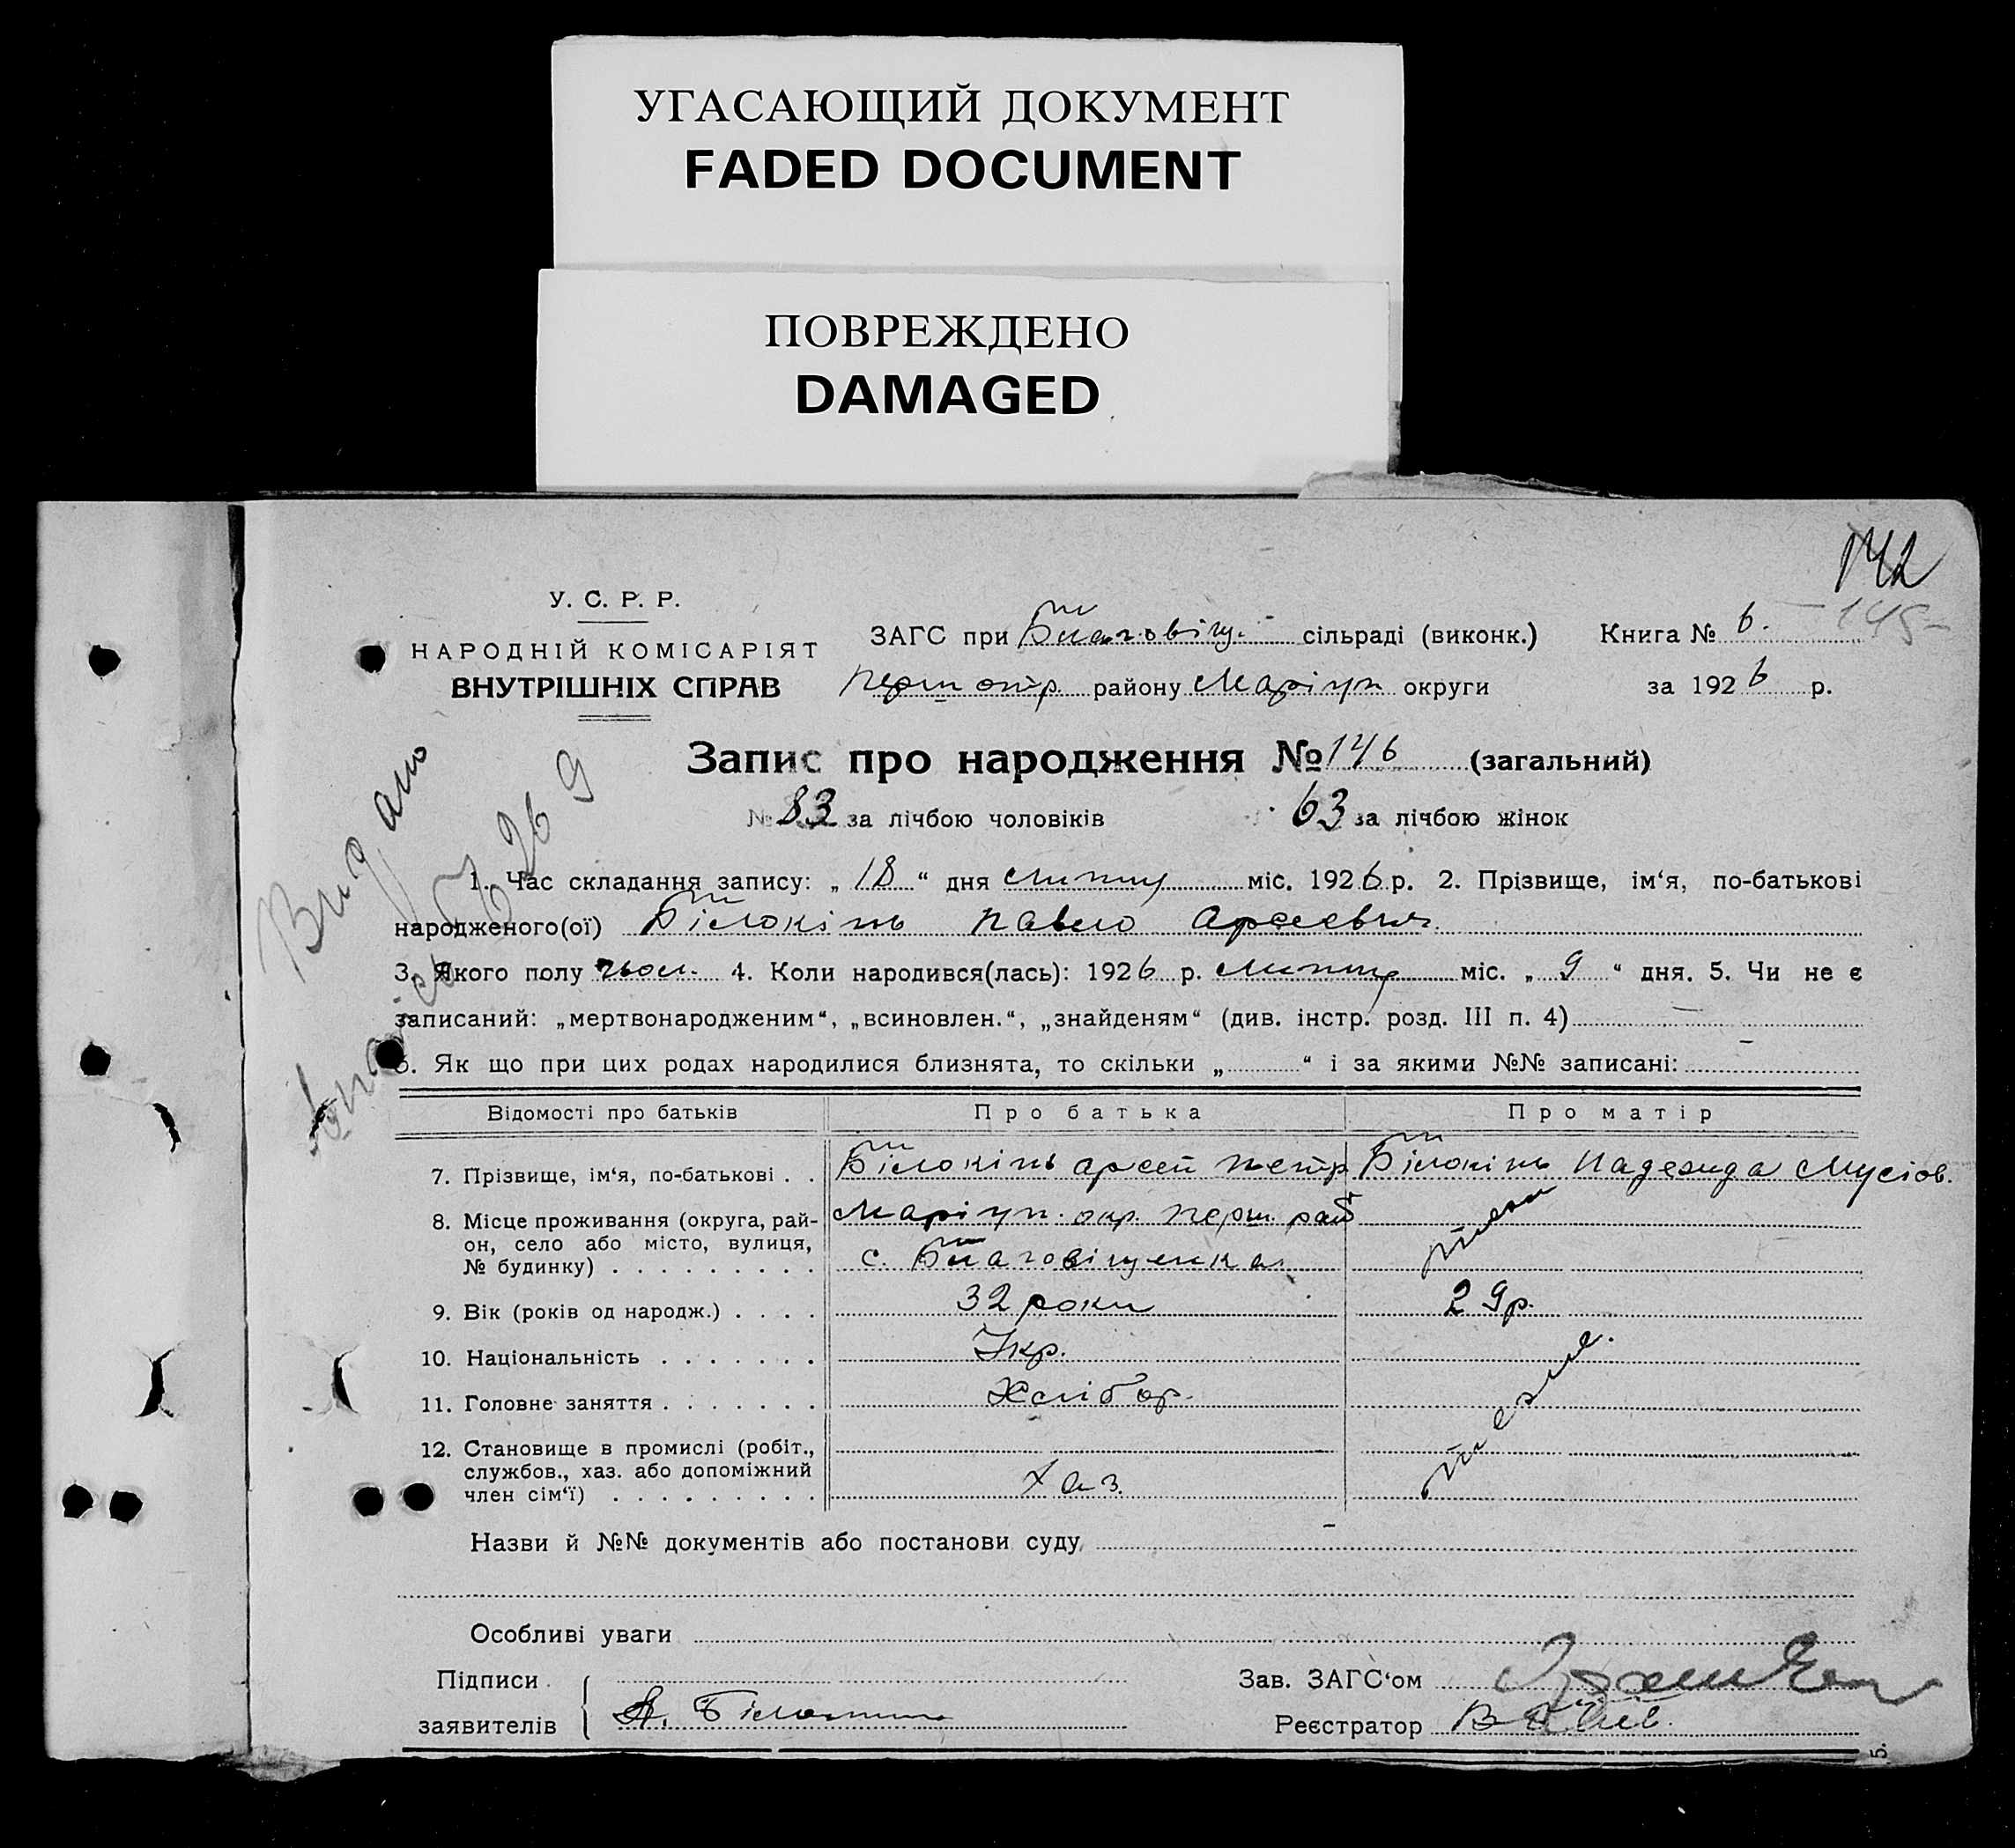 УГАСАЮЩИЙ ДОКУМЕНТ
FADED DOCUMENT
ПОВРЕЖДЕНО
DAMAGED
142
145
У. С. Р. Р.
НАРОДНІЙ КОМІСАРІЯТ
ВНУТРІШНІХ СПРАВ
ЗАГС при Благовіщ. сільраді (виконк.) Книга № 6.
Першотр. району Маріуп округи за 1926 р.
Запис про народження № 146 (загальний)
№ 83 за лічбою чоловіків 63 за лічбою жінок
Видано
1. Час складання запису: „ 18 “ дня липня міс. 1926 р. 2. Прізвище, ім‘я, по-батькові
народженого(ої) Білокінь Павло Арсеєвич
3. Якого полу чол. 4. Коли народився(лась): 1926 р. липня міс. „ 9 “ дня. 5. Чи не є
записаний: „мертвонародженим“, „всиновлен.“, „знайденям“ (див. інстр. розд. III п. 4) —
6. Як що при цих родах народилися близнята, то скільки „ “ і за якими №№ записані:
Відомості про батьків Про батька Про матір
7. Прізвище, ім‘я, по-батькові . . Білокінь Арсей Петр Білокінь Надежда Мусіов.
8. Місце проживання (округа, рай- Маріуп. окр. Перш. рай
он, село або місто, вулиця, с. Благовіщенка
№ будинку) . . . . . . . . .
9. Вік (років од народж.) . . . . 32 роки 29 р.
10. Національність . . . . . . . Укр.
11. Головне заняття . . . . . . . Хлібор.
12. Становище в промислі (робіт.,
службов., хаз. або допоміжний хаз.
член сім‘ї) . . . . . . . . .
Назви й №№ документів або постанови суду
Особливі уваги
Підписи Зав. ЗАГС‘ом
заявителів А. Білокінь Реєстратор
5.